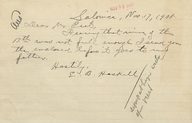 Salonica, Nov. 17, 1908.
Dear Mr. Peet:
Fearing that mine of the
13th was not full enough I send you
the enclosed before it goes to my
father.
Hastily,
E. B. Haskell